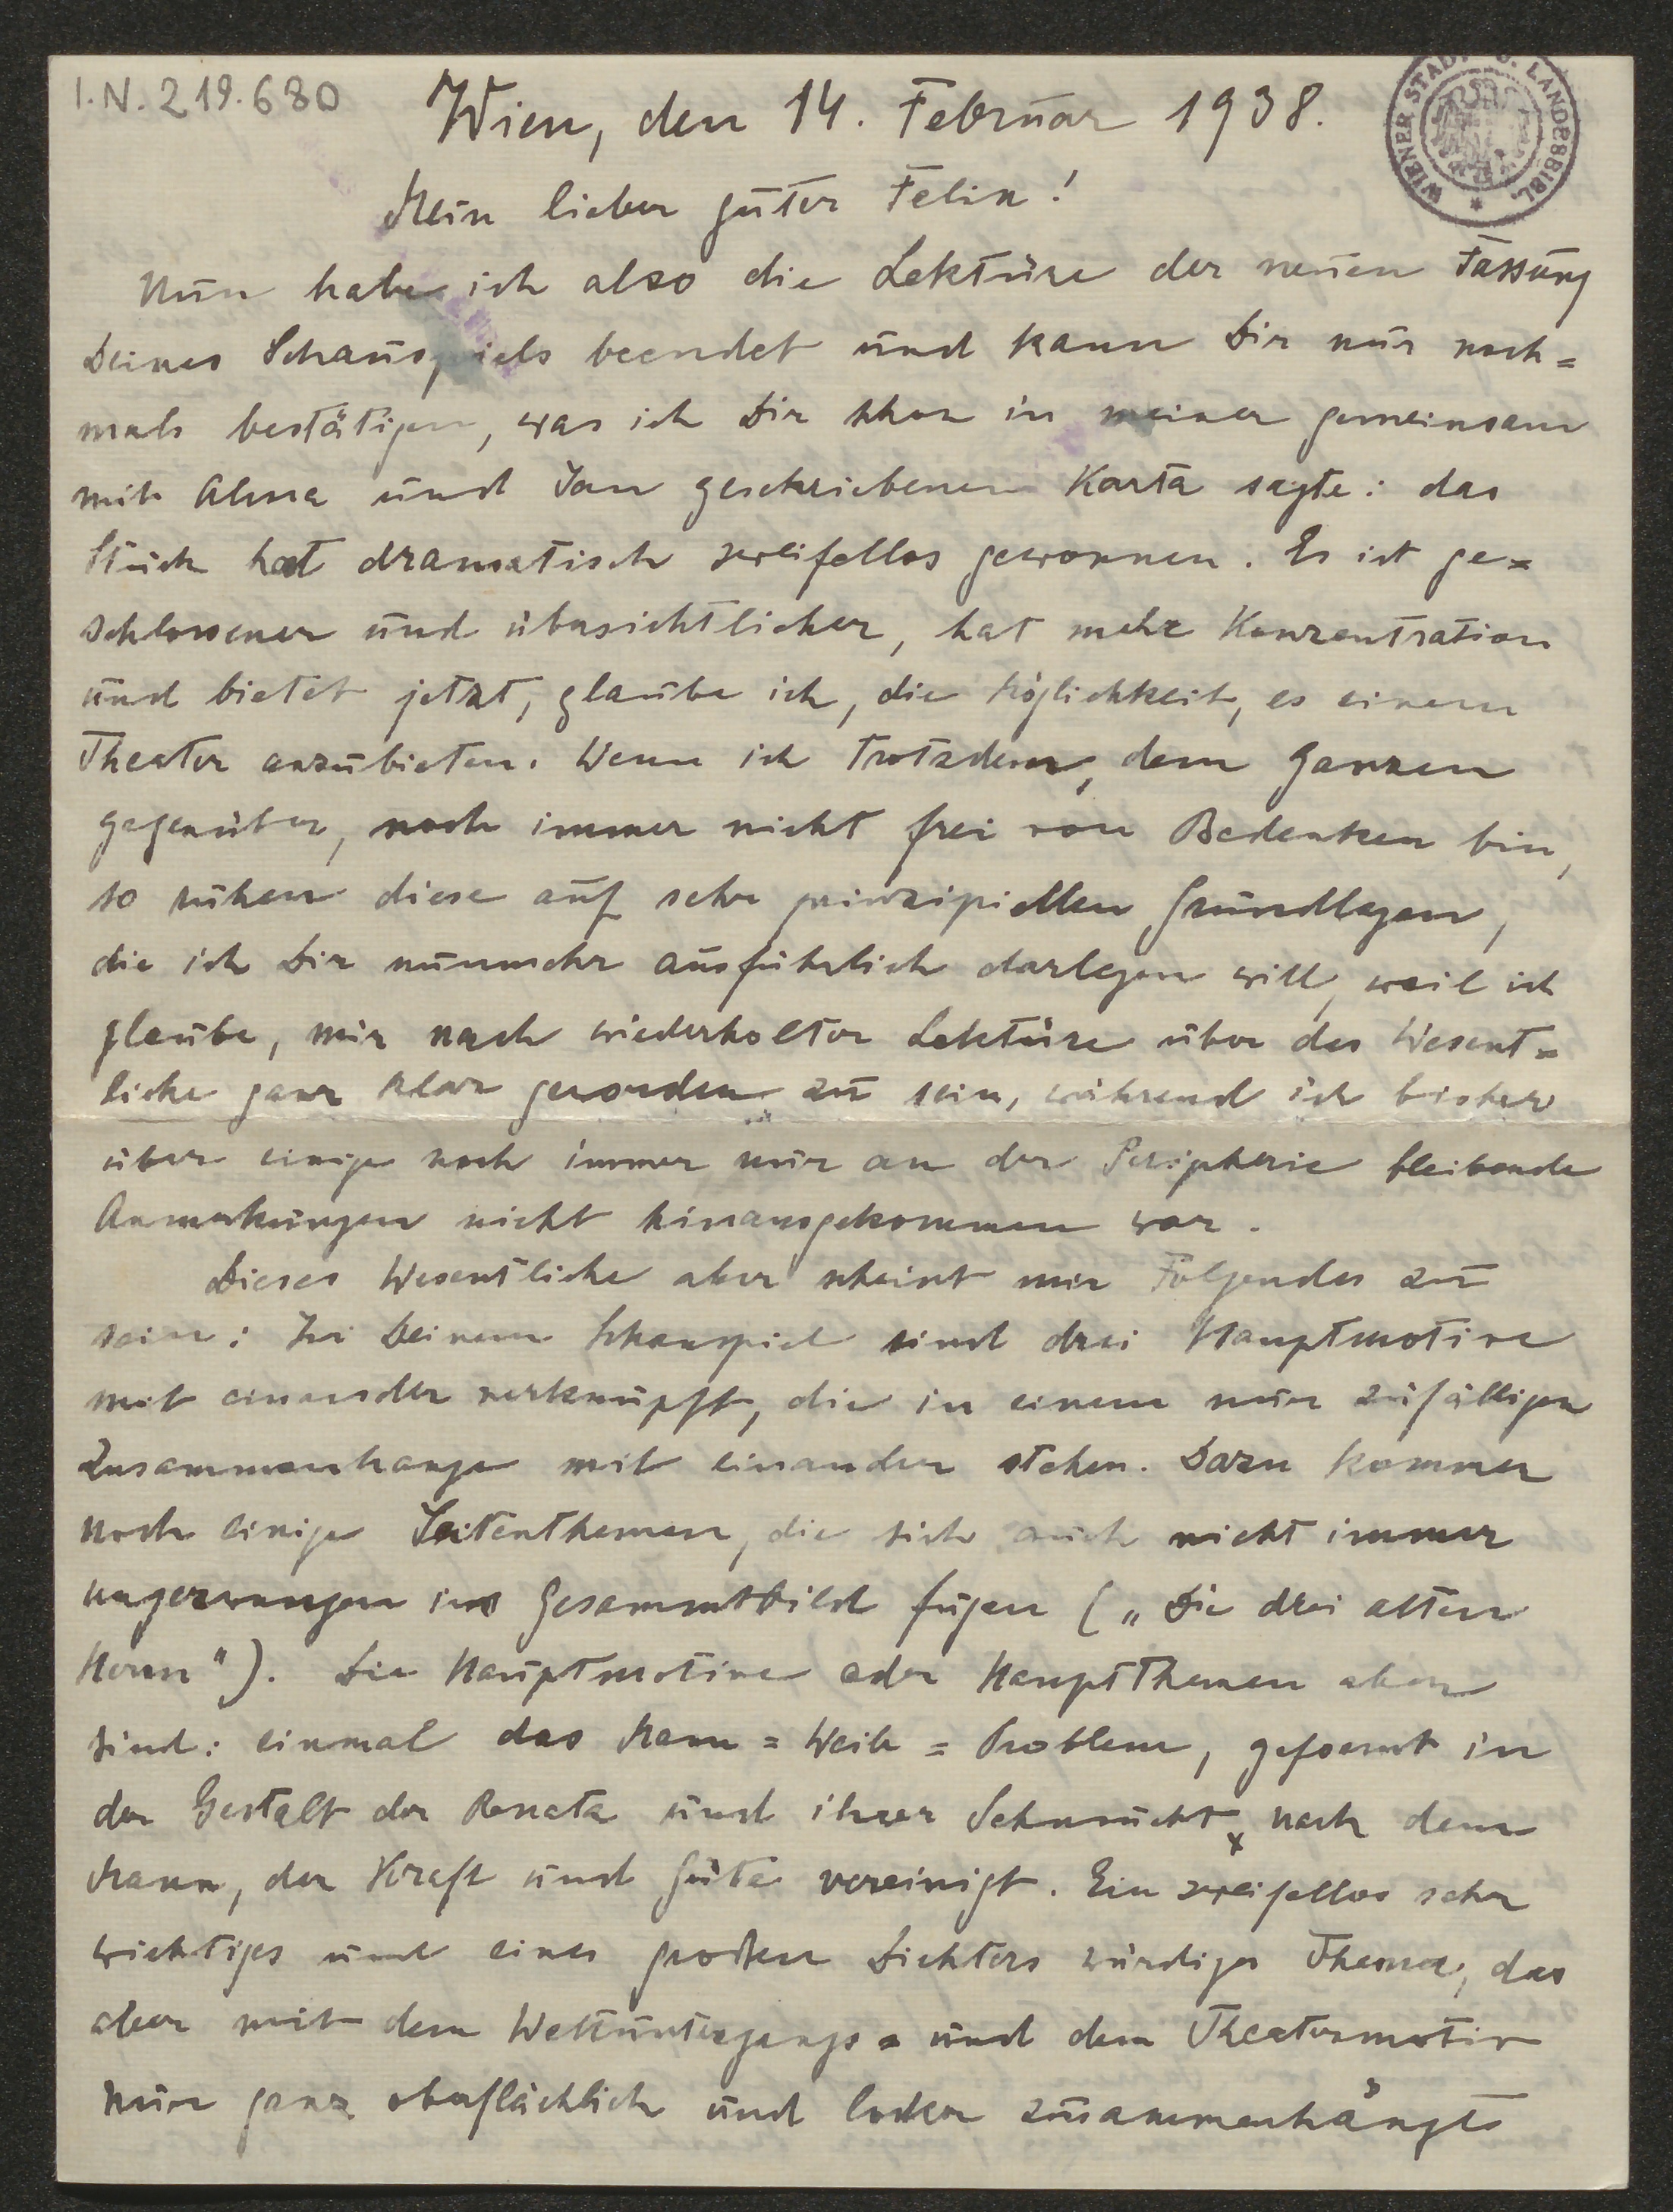 I.N. 219.680
Wien, den 14. Februar 1938.
WIENER STADT U. LANDESBIBL.
Mein lieber guter Felix!
Nun habe ich also die Lektüre der neuen Fassung
Deines Schauspiels beendet und kann Dir nur noch=
mals bestätigen, was ich Dir schon in meiner gemeinsam
mit Alma und Jan geschriebenen Karte sagte: das
Stück hat dramatisch zweifellos gewonnen. Es ist ge=
schlossener und übersichtlicher, hat mehr Konzentration
und bietet jetzt, glaube ich, die Möglichkeit, es einem
Theater anzubieten. Wenn ich trotzdem, dem Ganzen
gegenüber, noch immer nicht frei von Bedenken bin,
so ruhen diese auf sehr prinzipiellen Grundlagen,
die ich Dir nunmehr ausführlich darlegen will, weil ich
glaube, mir nach wiederholter Lektüre über das Wesent=
liche ganz klar geworden zu sein, während ich bisher
über einige noch immer nur an der Peripherie bleibende
Anmerkungen nicht hinausgekommen war.
Dieses Wesentliche aber scheint mir Folgendes zu
sein: In Deinem Schauspiel sind drei Hauptmotive
mit einander verknüpft, die in einem nur zufälligen
Zusammenhange mit einander stehen. Dazu kommen
noch einige Seitenthemen, die sich auch nicht immer
ungezwungen ins Gesammtbild fügen („Die drei alten
Herrn"). Die Hauptmotive oder Hauptthemen aber
sind: einmal das Mann = Weib = Problem, geformt in
der Gestalt der Renata und ihrer Sehnsucht x nach dem
Mann, der Kraft und Güte vereinigt. Ein zweifellos sehr
wichtiges und eines großen Dichters würdiges Thema, das
aber mit dem Weltuntergangs = und dem Theatermotiv
nur ganz oberflächlich und locker zusammenhängt